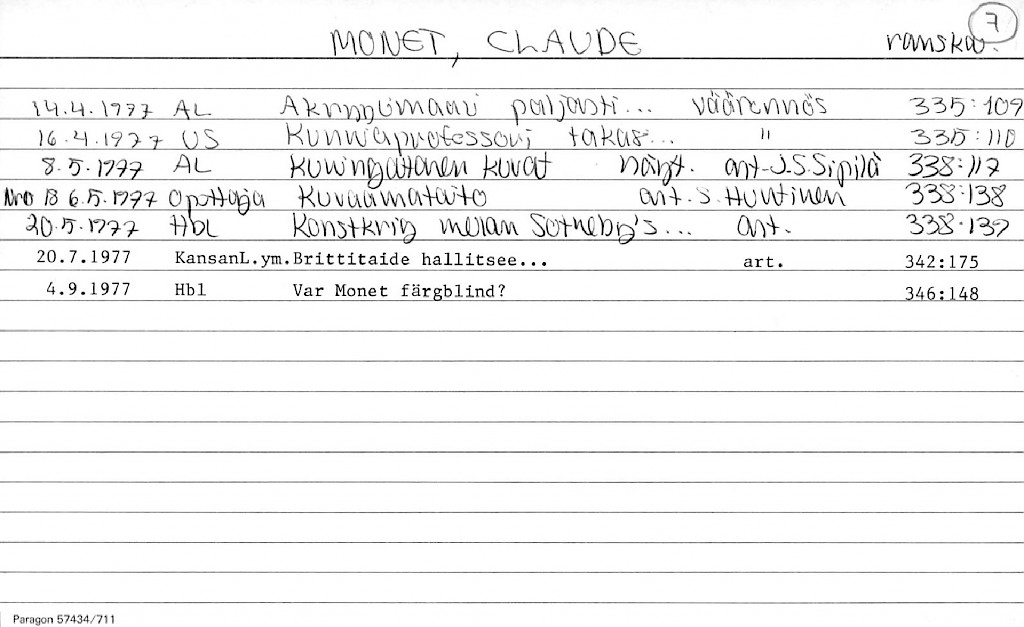 7
MONET, CLAUDE ranska.
14.4.1977 AL Akryylimaali paljasti... väärennös 335:109
16.4.1977 US Kunniaprofessori takas... " 335:110
8.5.1977 AL Kuningattaren kuvat näyt. art-J.S.Sipilä 338:117
Nro 18 6.5.1977 Opettaja Kuvaamataito art. S. Huntinen 338:138
20.5.1977 Hbl Konstkrig mellan Sotheby's... art. 338:139
20.7.1977 KansanL.ym. Brittitaide hallitsee... art. 342:175
4.9.1977 Hbl Var Monet färgblind? 346:148
Paragon 57434/711